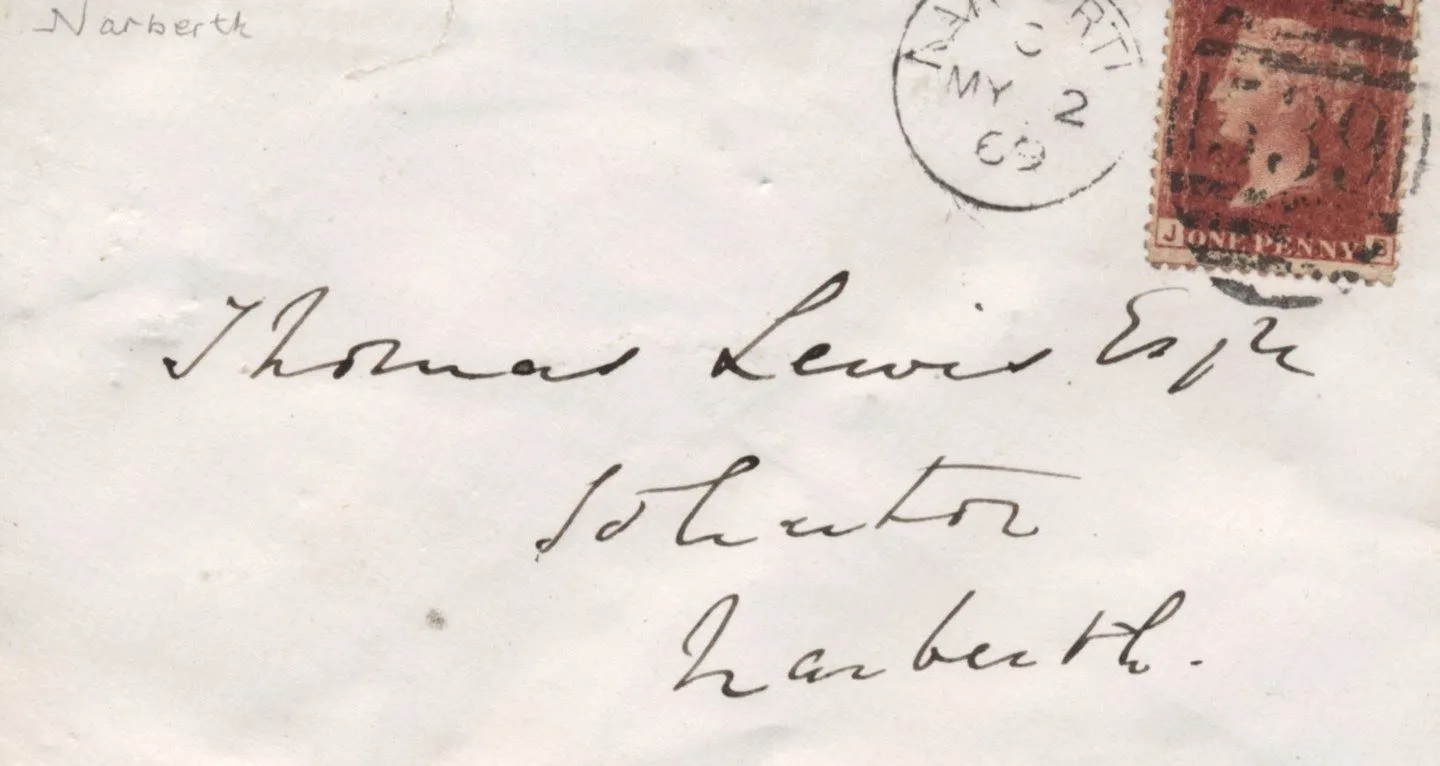 Narberth
C
MY 2
69
J ONE PENNY
Thomas Lewis Esqr
Solicitor
Narberth.